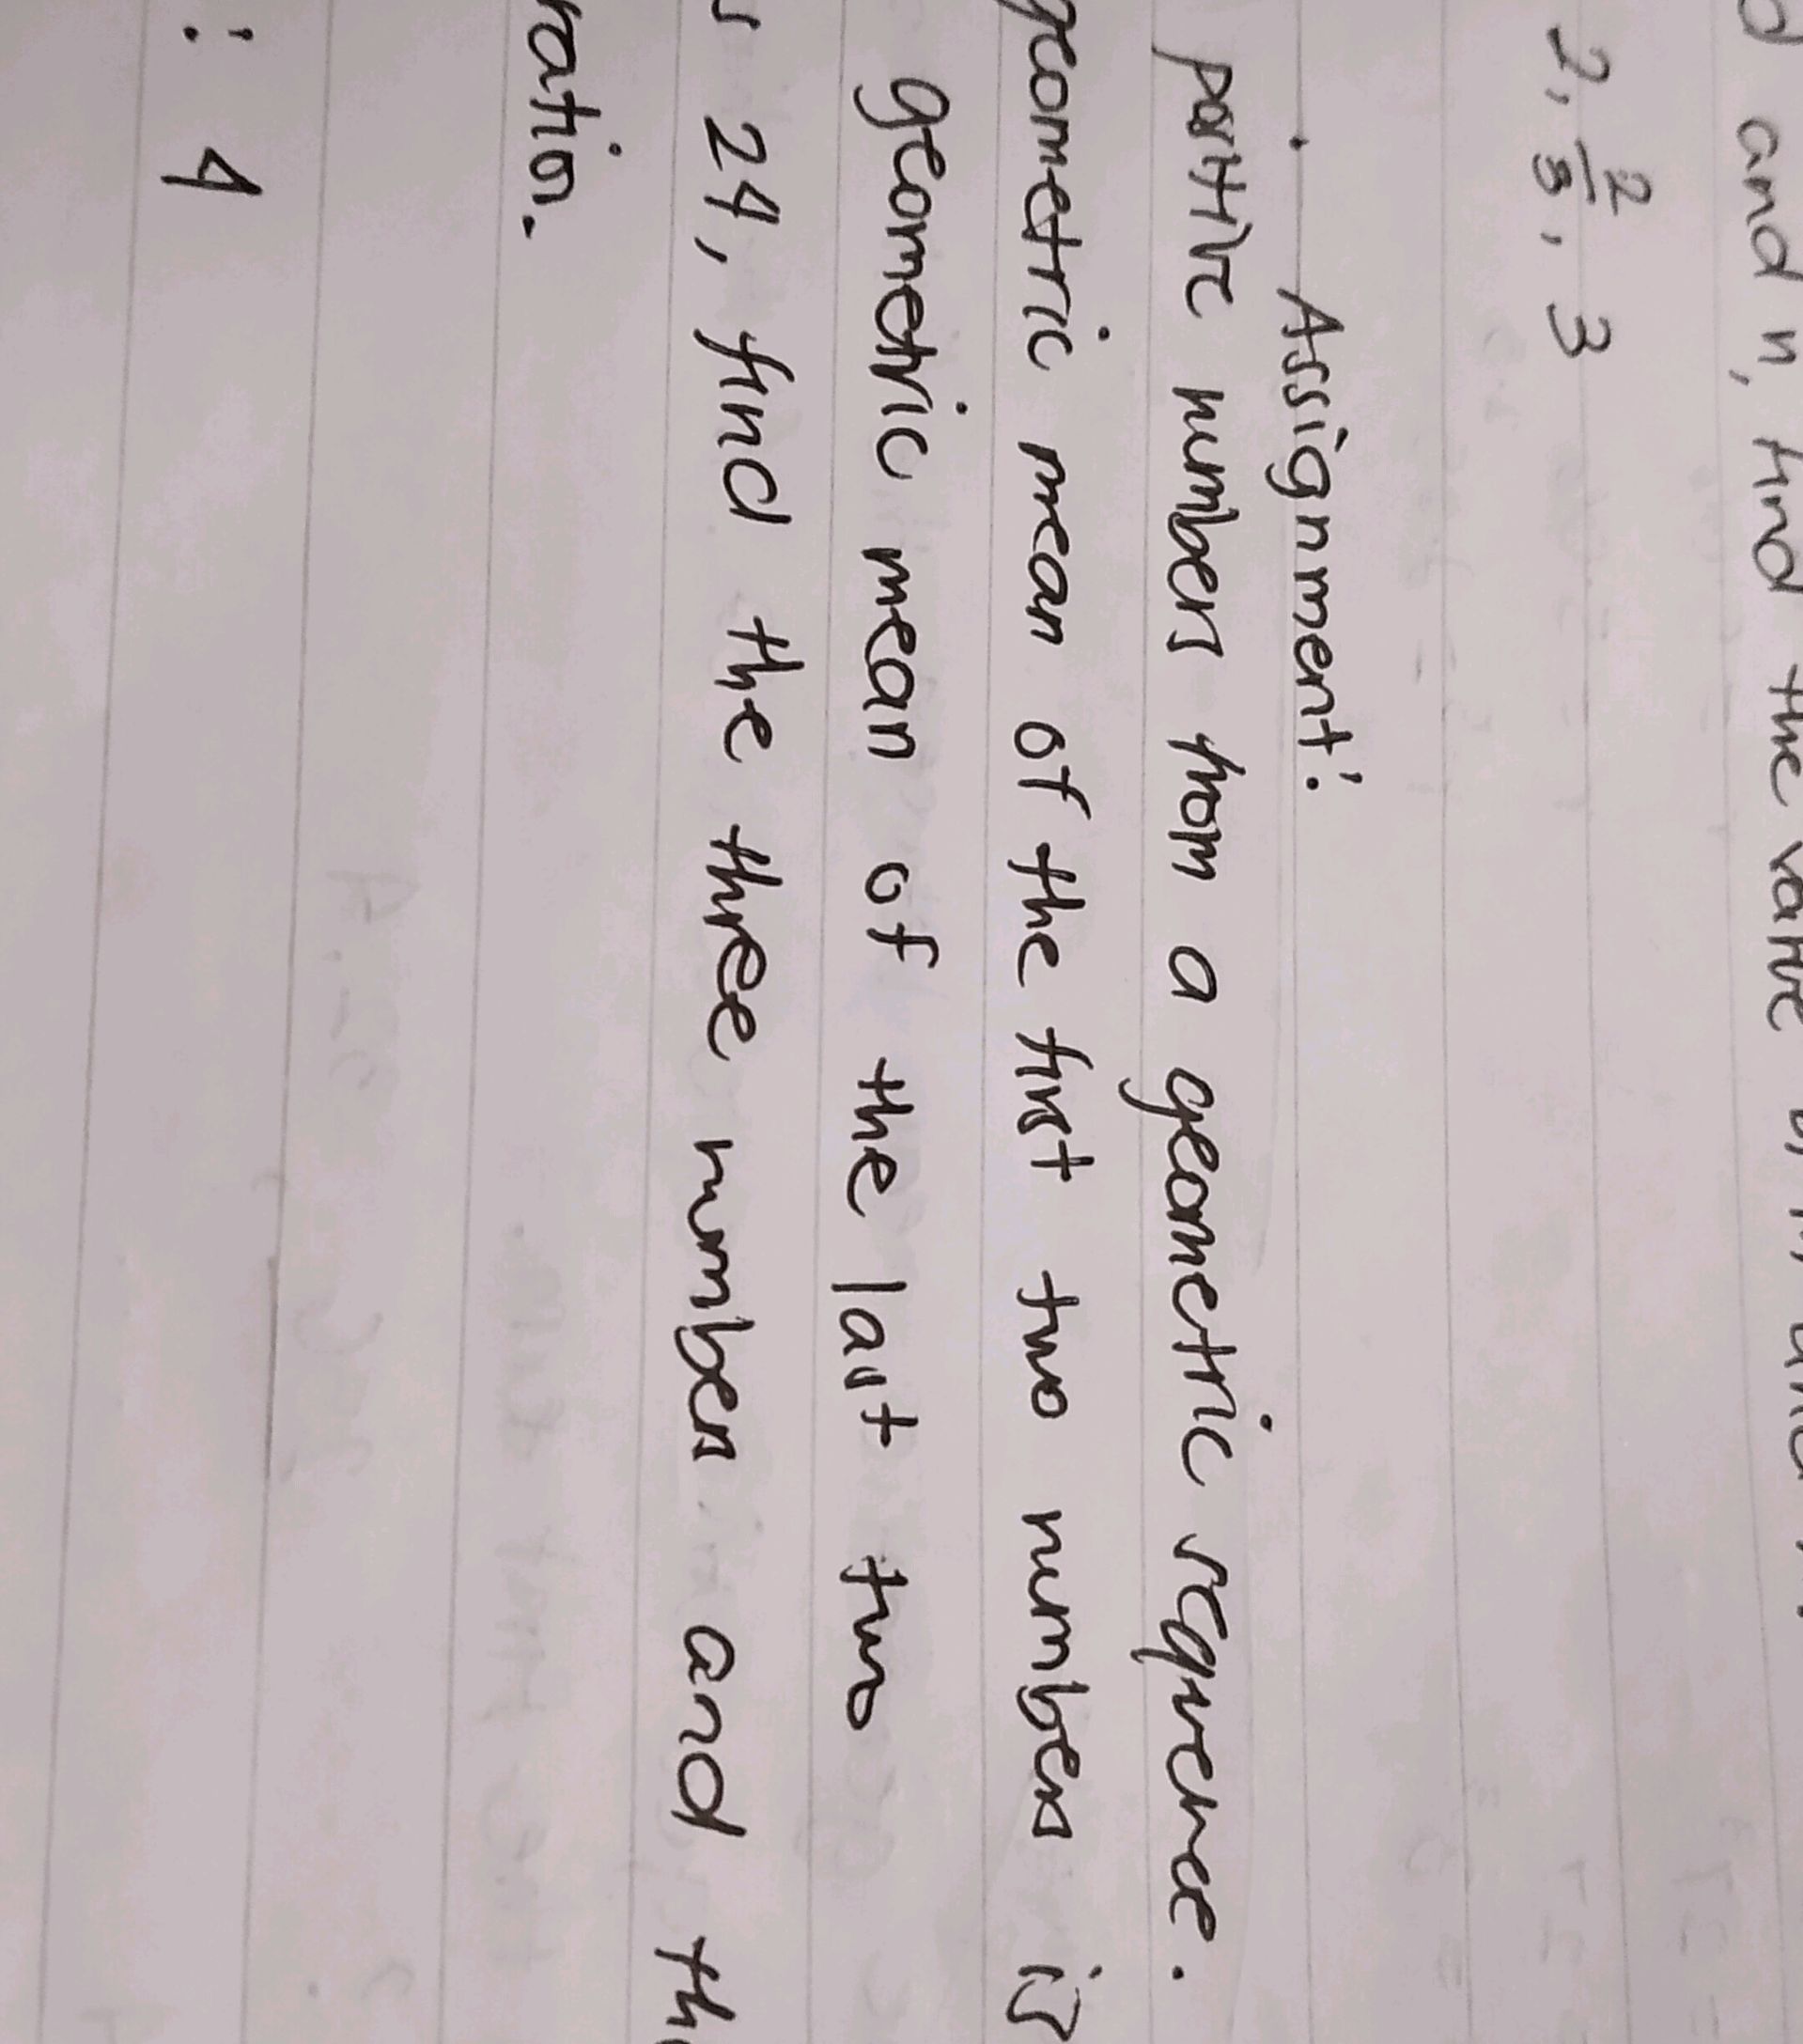 and n, find the value
2, 2/3, 3
Assignment:
positive numbers from a geometric sequence.
geometric mean of the first two numbers is
geometric mean of the last two
24, find the three numbers and
ratio.
: 4